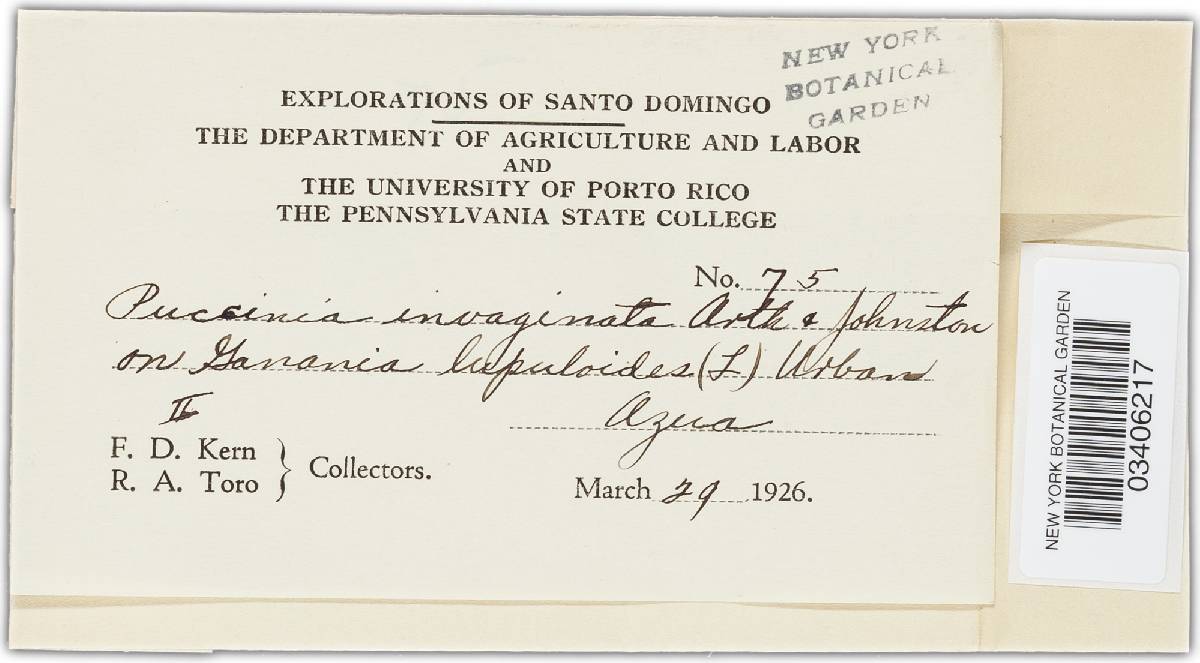 NEW YORK
BOTANICAL
GARDEN
EXPLORATIONS OF SANTO DOMINGO
THE DEPARTMENT OF AGRICULTURE AND LABOR
AND
THE UNIVERSITY OF PORTO RICO
THE PENNSYLVANIA STATE COLLEGE
No. 75
Puccinia invaginata Arth & Johnston
on Ganania lupuloides (L) Urban
II
Azua
F. D. Kern
R. A. Toro
Collectors.
March 29 1926.
NEW YORK BOTANICAL GARDEN
03406217